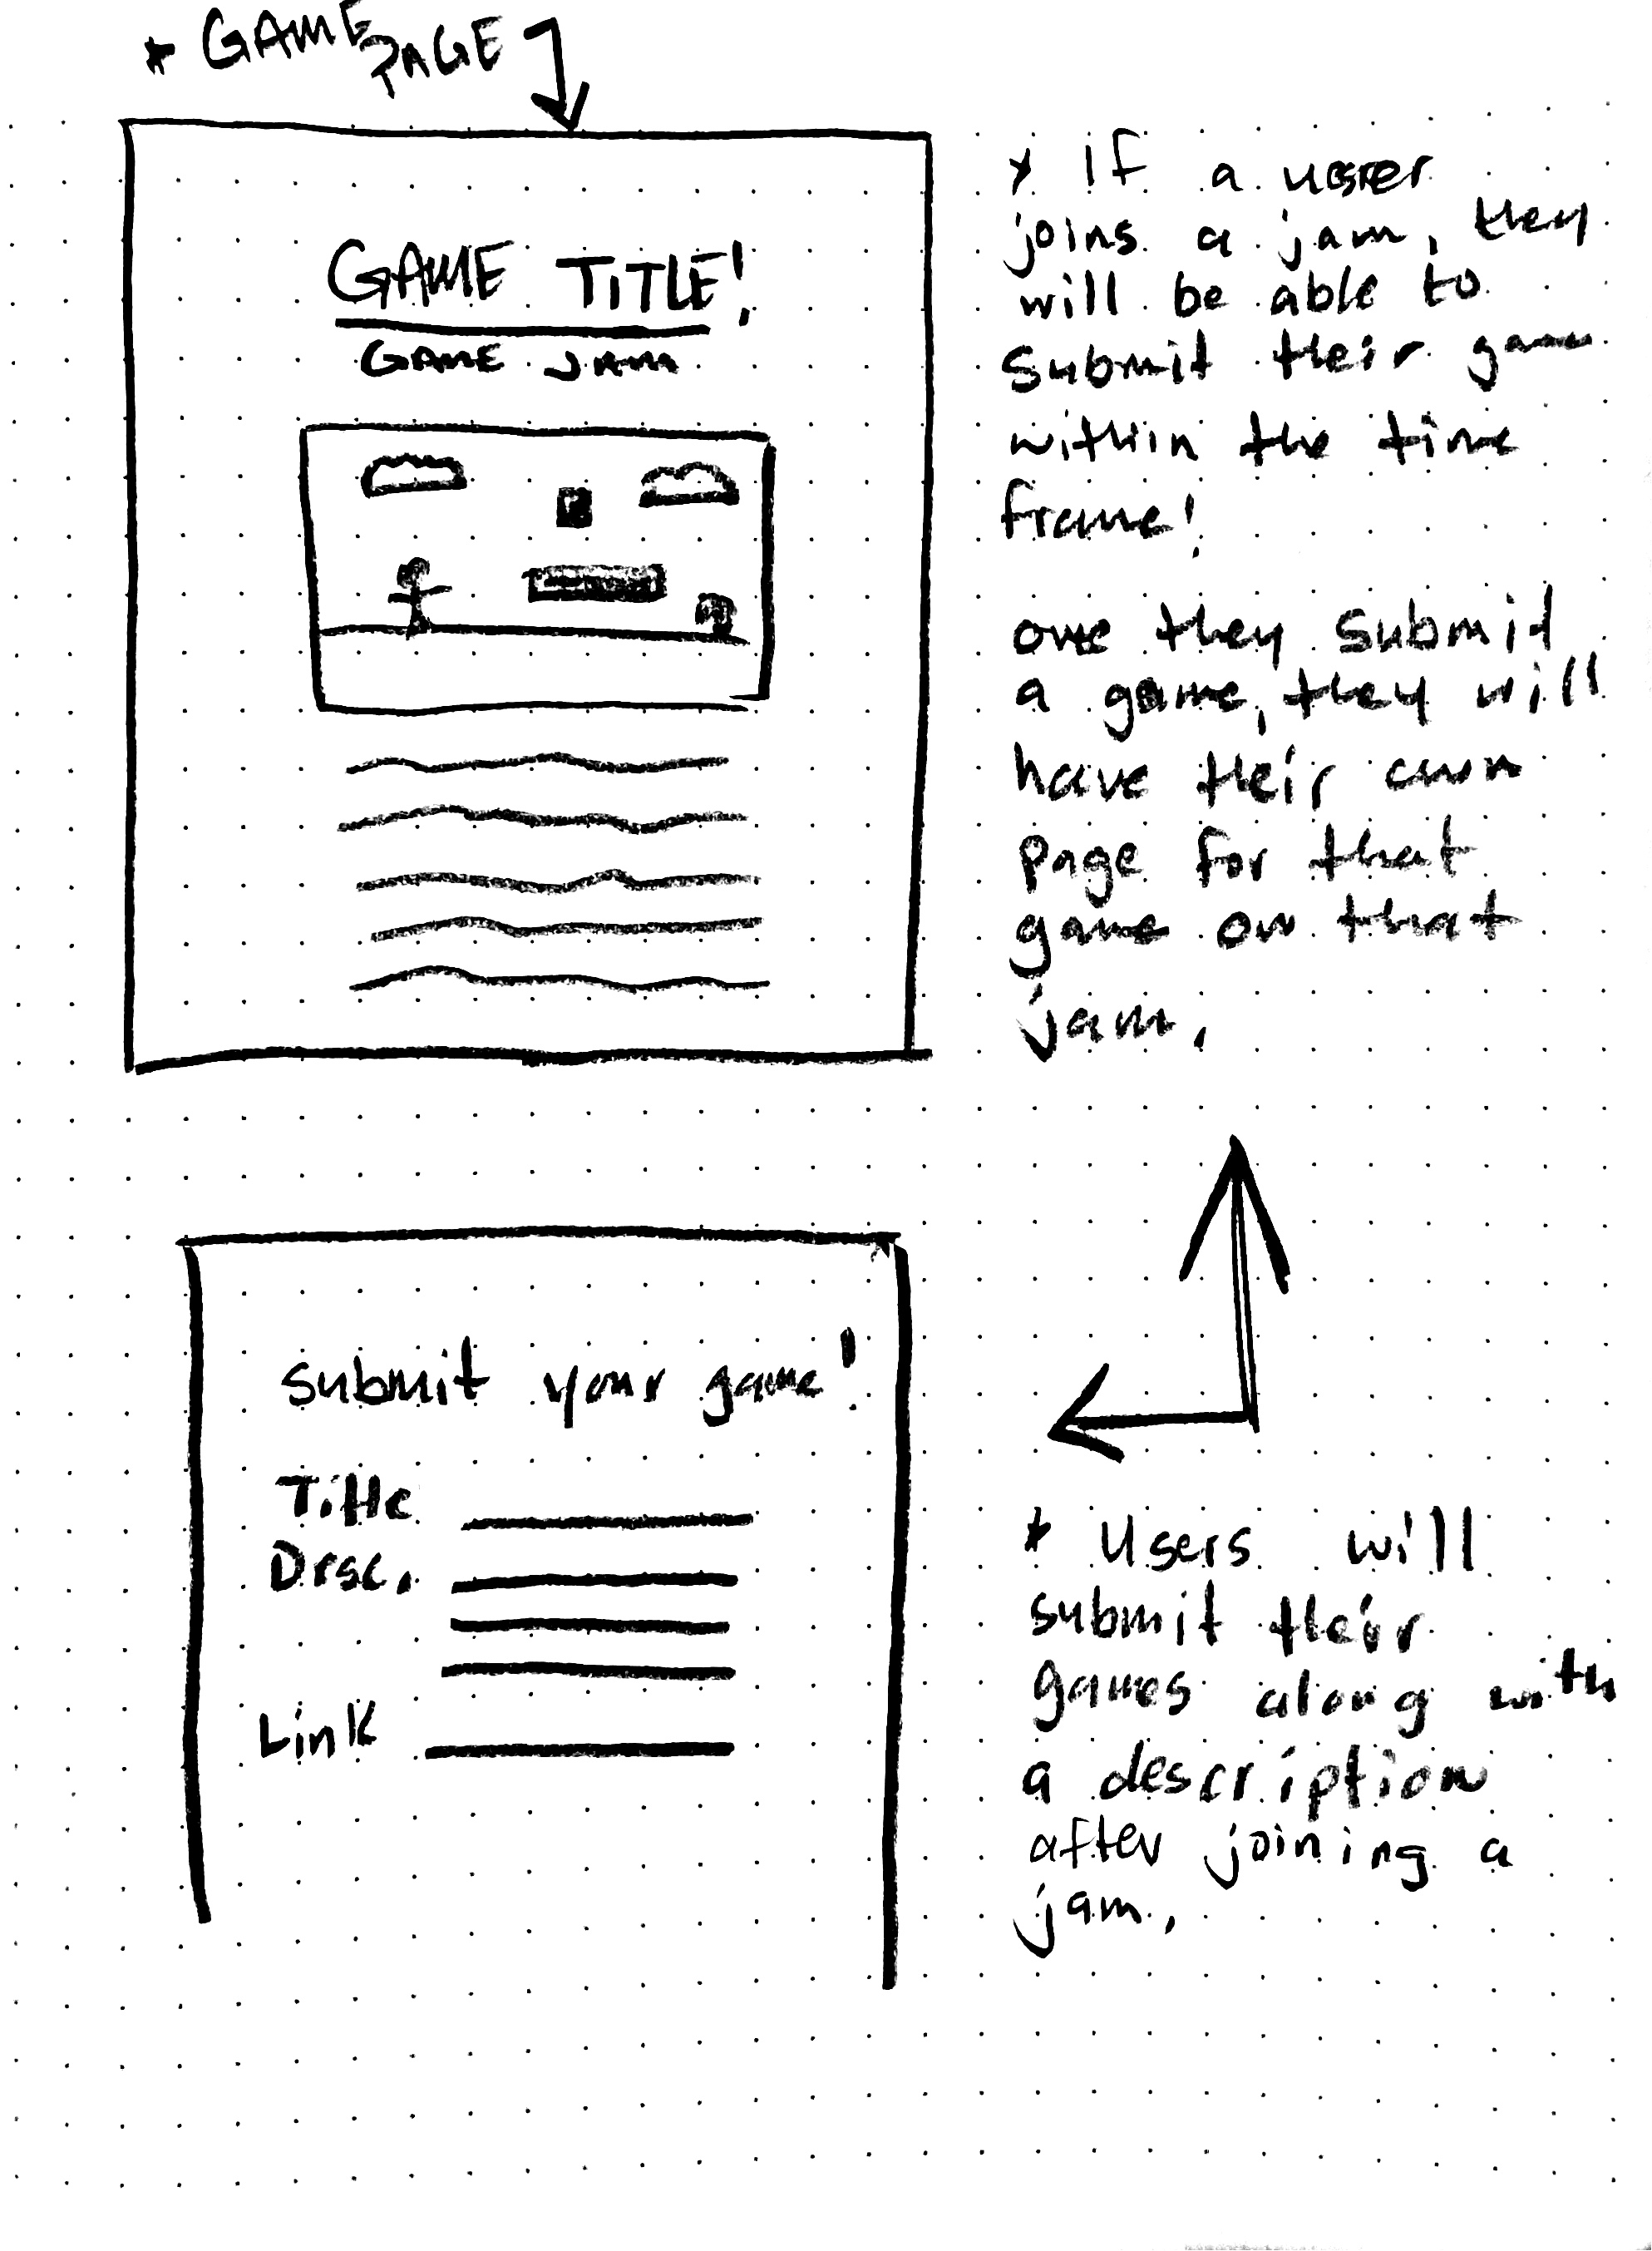 * GAME PAGE
GAME TITLE!
GAME JAM
* If a user
joins a jam, they
will be able to
submit their game
within the time
frame!
once they submit
a game, they will
have their own
page for that
game on that
jam.
submit your game!
Title
Desc.
Link
* Users will
submit their
games along with
a description
after joining a
jam.